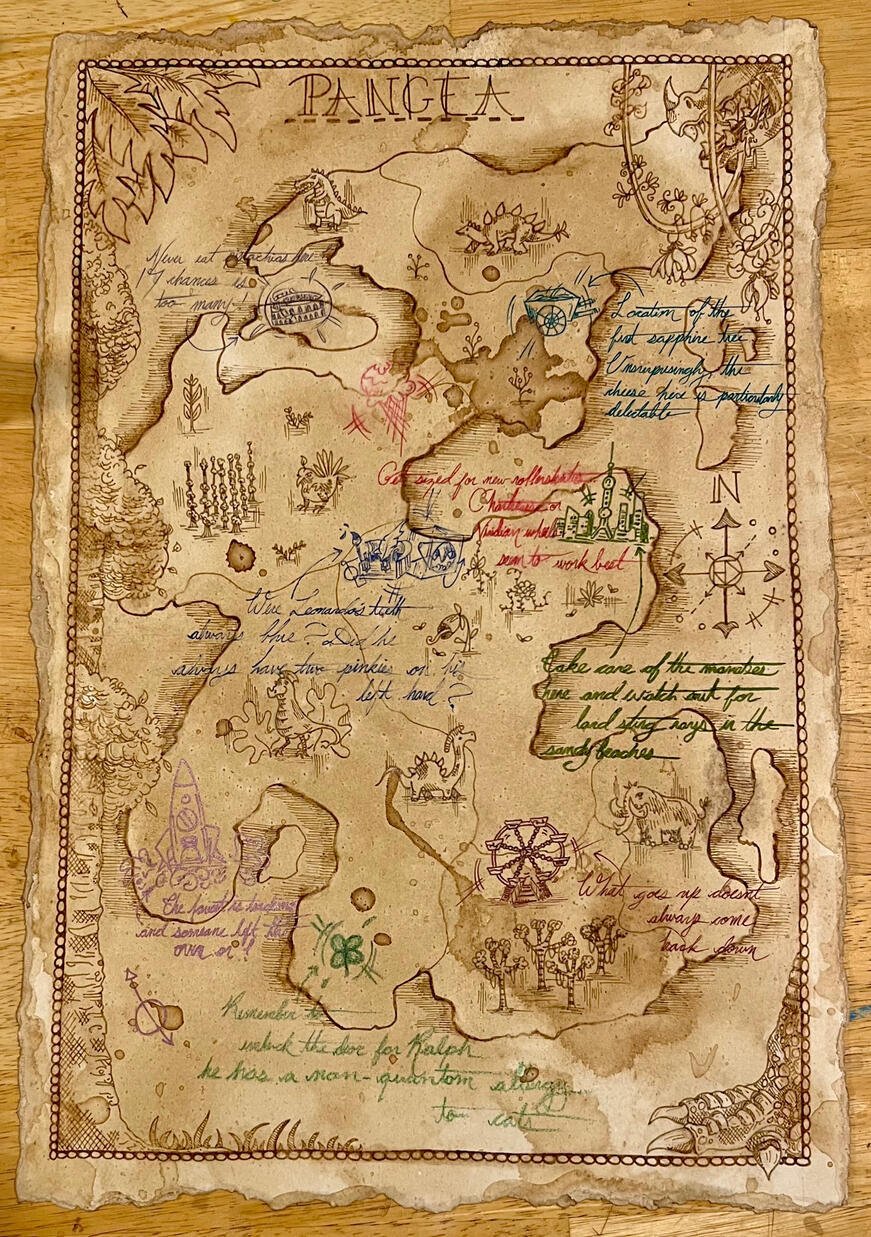 PANGEA
Never eat pistachios here
17 chances is
too many!
Location of the
first sapphire tree
Unsurprisingly, the
cheese here is particularly
delectable
N
Get sized for new rollerskates
Chartreuse or
Viridian wheels
seem to work best
Were Leonardo's teeth
always blue? Did he
always have two pinkies on his
left hand?
Take care of the manatees
here and watch out for
land sting rays in the
sandy beaches
What goes up doesn't
always come
back down
The faucet is leaking
and someone left the
oven on!
Remember to
unlock the door for Ralph
he has a non-quantum allergy
to cats